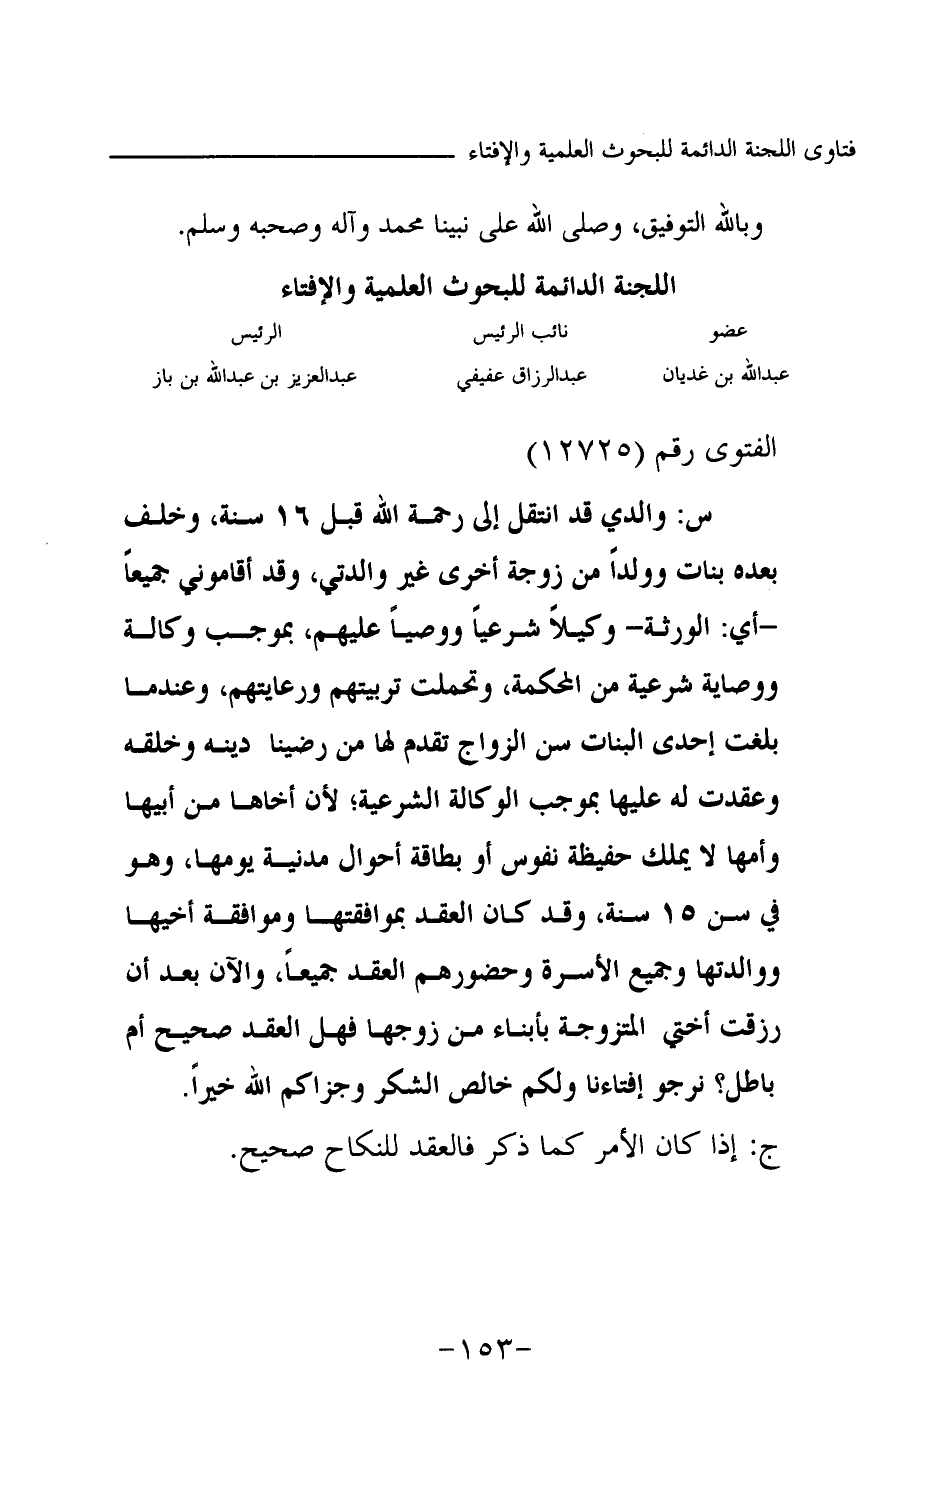 فتاوى اللجنة الدائمة للبحوث العلمية والإفتاء
وبالله التوفيق، وصلى الله على نبينا محمد وآله وصحبه وسلم.
اللجنة الدائمة للبحوث العلمية والإفتاء
عضو نائب الرئيس الرئيس
عبدالله بن غديان عبدالرزاق عفيفي عبدالعزيز بن عبدالله بن باز
الفتوى رقم (١٢٧٢٥)
س: والدي قد انتقل إلى رحمة الله قبل ١٦ سنة، وخلف
بعده بنات وولداً من زوجة أخرى غير والدتي، وقد أقاموني جميعاً
-أي: الورثة- وكيلاً شرعياً ووصياً عليهم، بموجب وكالة
ووصاية شرعية من المحكمة، وتحملت تربيتهم ورعايتهم، وعندما
بلغت إحدى البنات سن الزواج تقدم لها من رضينا دينه وخلقه
وعقدت له عليها بموجب الوكالة الشرعية؛ لأن أخاها من أبيها
وأمها لا يملك حفيظة نفوس أو بطاقة أحوال مدنية يومها، وهو
في سن ١٥ سنة، وقد كان العقد بموافقتها وموافقة أخيها
ووالدتها وجميع الأسرة وحضورهم العقد جميعاً، والآن بعد أن
رزقت أختي المتزوجة بأبناء من زوجها فهل العقد صحيح أم
باطل؟ نرجو إفتاءنا ولكم خالص الشكر وجزاكم الله خيراً.
ج: إذا كان الأمر كما ذكر فالعقد للنكاح صحيح.
-١٥٣-